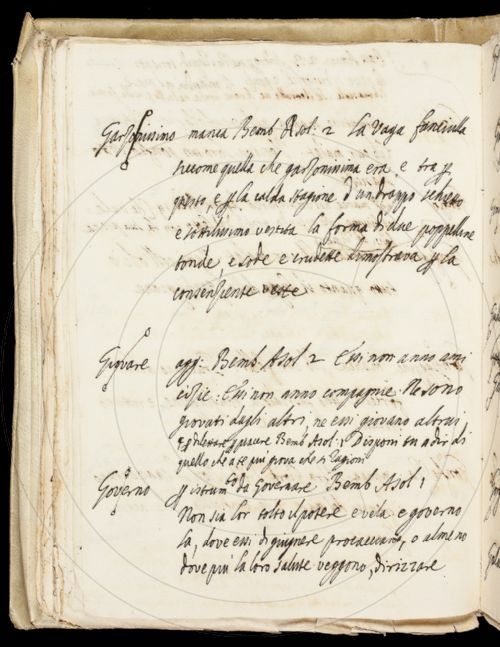 Garzonissimo manca Bemb Asol: 2 la vaga fanciulla
siccome quella che garzonissima era e tra p
questo e p la calda stagione d'un drappo schietto
e sottilissimo vestita la forma di due poppelline
tonde e sode e crudette dimostrava p la
consenziente veste
Giovare agg: Bemb Asol 2 Essi non anno ami
cizie: Essi non anno compagnie. Ne sono
giovati dagli altri, ne essi giovano altrui
p dilettare piacere Bemb Asol: 1 Disponi tu a dir di
quello che a te piu giova che si ragioni
Governo p istrum.to da Governare Bemb Asol 1
Non sia lor tolto il potere e vela e governo
la, dove essi di giugnere procacciano, o almeno
dove piu la loro salute veggono, dirizzare